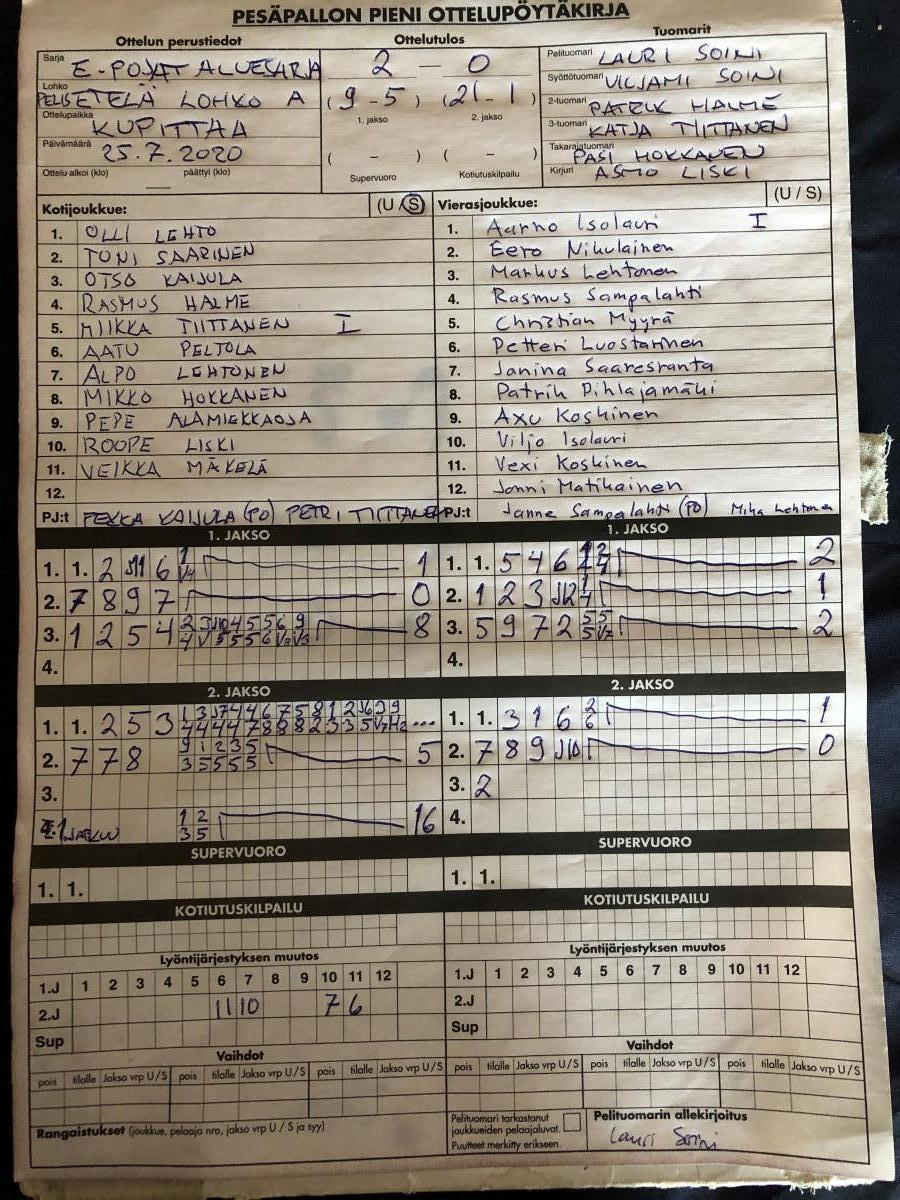 PESÄPALLON PIENI OTTELUPÖYTÄKIRJA
Ottelun perustiedot
Ottelutulos
Tuomarit
Sarja E-POJAT ALUESARJA
2 — 0
Pelituomari LAURI SOINI
Lohko ETELÄ LOHKO A
(9-5) (21-1)
Syöttötuomari VILJAMI SOINI
Ottelupaikka KUPITTAA
1. jakso 2. jakso
2-tuomari PATRIK HALME
3-tuomari KATJA TIITTANEN
Päivämäärä 25.7.2020
( - ) ( - )
Takarajatuomari PASI HOKKANEN
Ottelu alkoi (klo) — päättyi (klo)
Supervuoro Kotiutuskilpailu
Kirjuri ASMO LISKI
Kotijoukkue: (U/S)
Vierasjoukkue: (U / S)
1. OLLI LEHTO
2. TONI SAARINEN
3. OTSO KAIJULA
4. RASMUS HALME
5. MIIKKA TIITTANEN I
6. AATU PELTOLA
7. ALPO LEHTONEN
8. MIKKO HOKKANEN
9. PEPE ALAMIEKKAOJA
10. ROOPE LISKI
11. VEIKKA MÄKELÄ
12.
PJ:t PEKKA KAIJULA (PO) PETRI TIITTANEN
1. Aarno Isolauri I
2. Eero Nikulainen
3. Markus Lehtonen
4. Rasmus Sampalahti
5. Christian Myyrä
6. Petteri Luostarinen
7. Janina Saaresranta
8. Patrik Pihlajamäki
9. Axu Koskinen
10. Viljo Isolauri
11. Vexi Koskinen
12. Jonni Matikainen
PJ:t Janne Sampalahti (PO) Mika Lehtonen
1. JAKSO
1. 1. 2 J11 6 1
2. 7 8 9 7 0
3. 1 2 5 4 8
4.
1. JAKSO
1. 1. 5 4 6 2
2. 1 2 3 J12 1
3. 5 9 7 2 2
4.
2. JAKSO
1. 1. 2 5 3 ...
2. 7 7 8 9 1 2 3 5 5
3 5 5 5 5
3.
1 JATKUU 1 2 16
3 5
2. JAKSO
1. 1. 3 1 6 2 1
6
2. 7 8 9 J10 0
3. 2
4.
SUPERVUORO
1. 1.
SUPERVUORO
1. 1.
KOTIUTUSKILPAILU
KOTIUTUSKILPAILU
Lyöntijärjestyksen muutos
1.J 1 2 3 4 5 6 7 8 9 10 11 12
2.J 11 10 7 6
Sup
Lyöntijärjestyksen muutos
1.J 1 2 3 4 5 6 7 8 9 10 11 12
2.J
Sup
Vaihdot
pois tilalle Jakso vrp U/S pois tilalle Jakso vrp U/S pois tilalle Jakso vrp U/S
Vaihdot
pois tilalle Jakso vrp U/S pois tilalle Jakso vrp U/S pois tilalle Jakso vrp U/S
Rangaistukset (joukkue, pelaaja nro, jakso vrp U / S ja syy)
Pelituomari tarkastanut
joukkueiden pelaajaluvat.
Puutteet merkitty erikseen.
Pelituomarin allekirjoitus
Lauri Soini